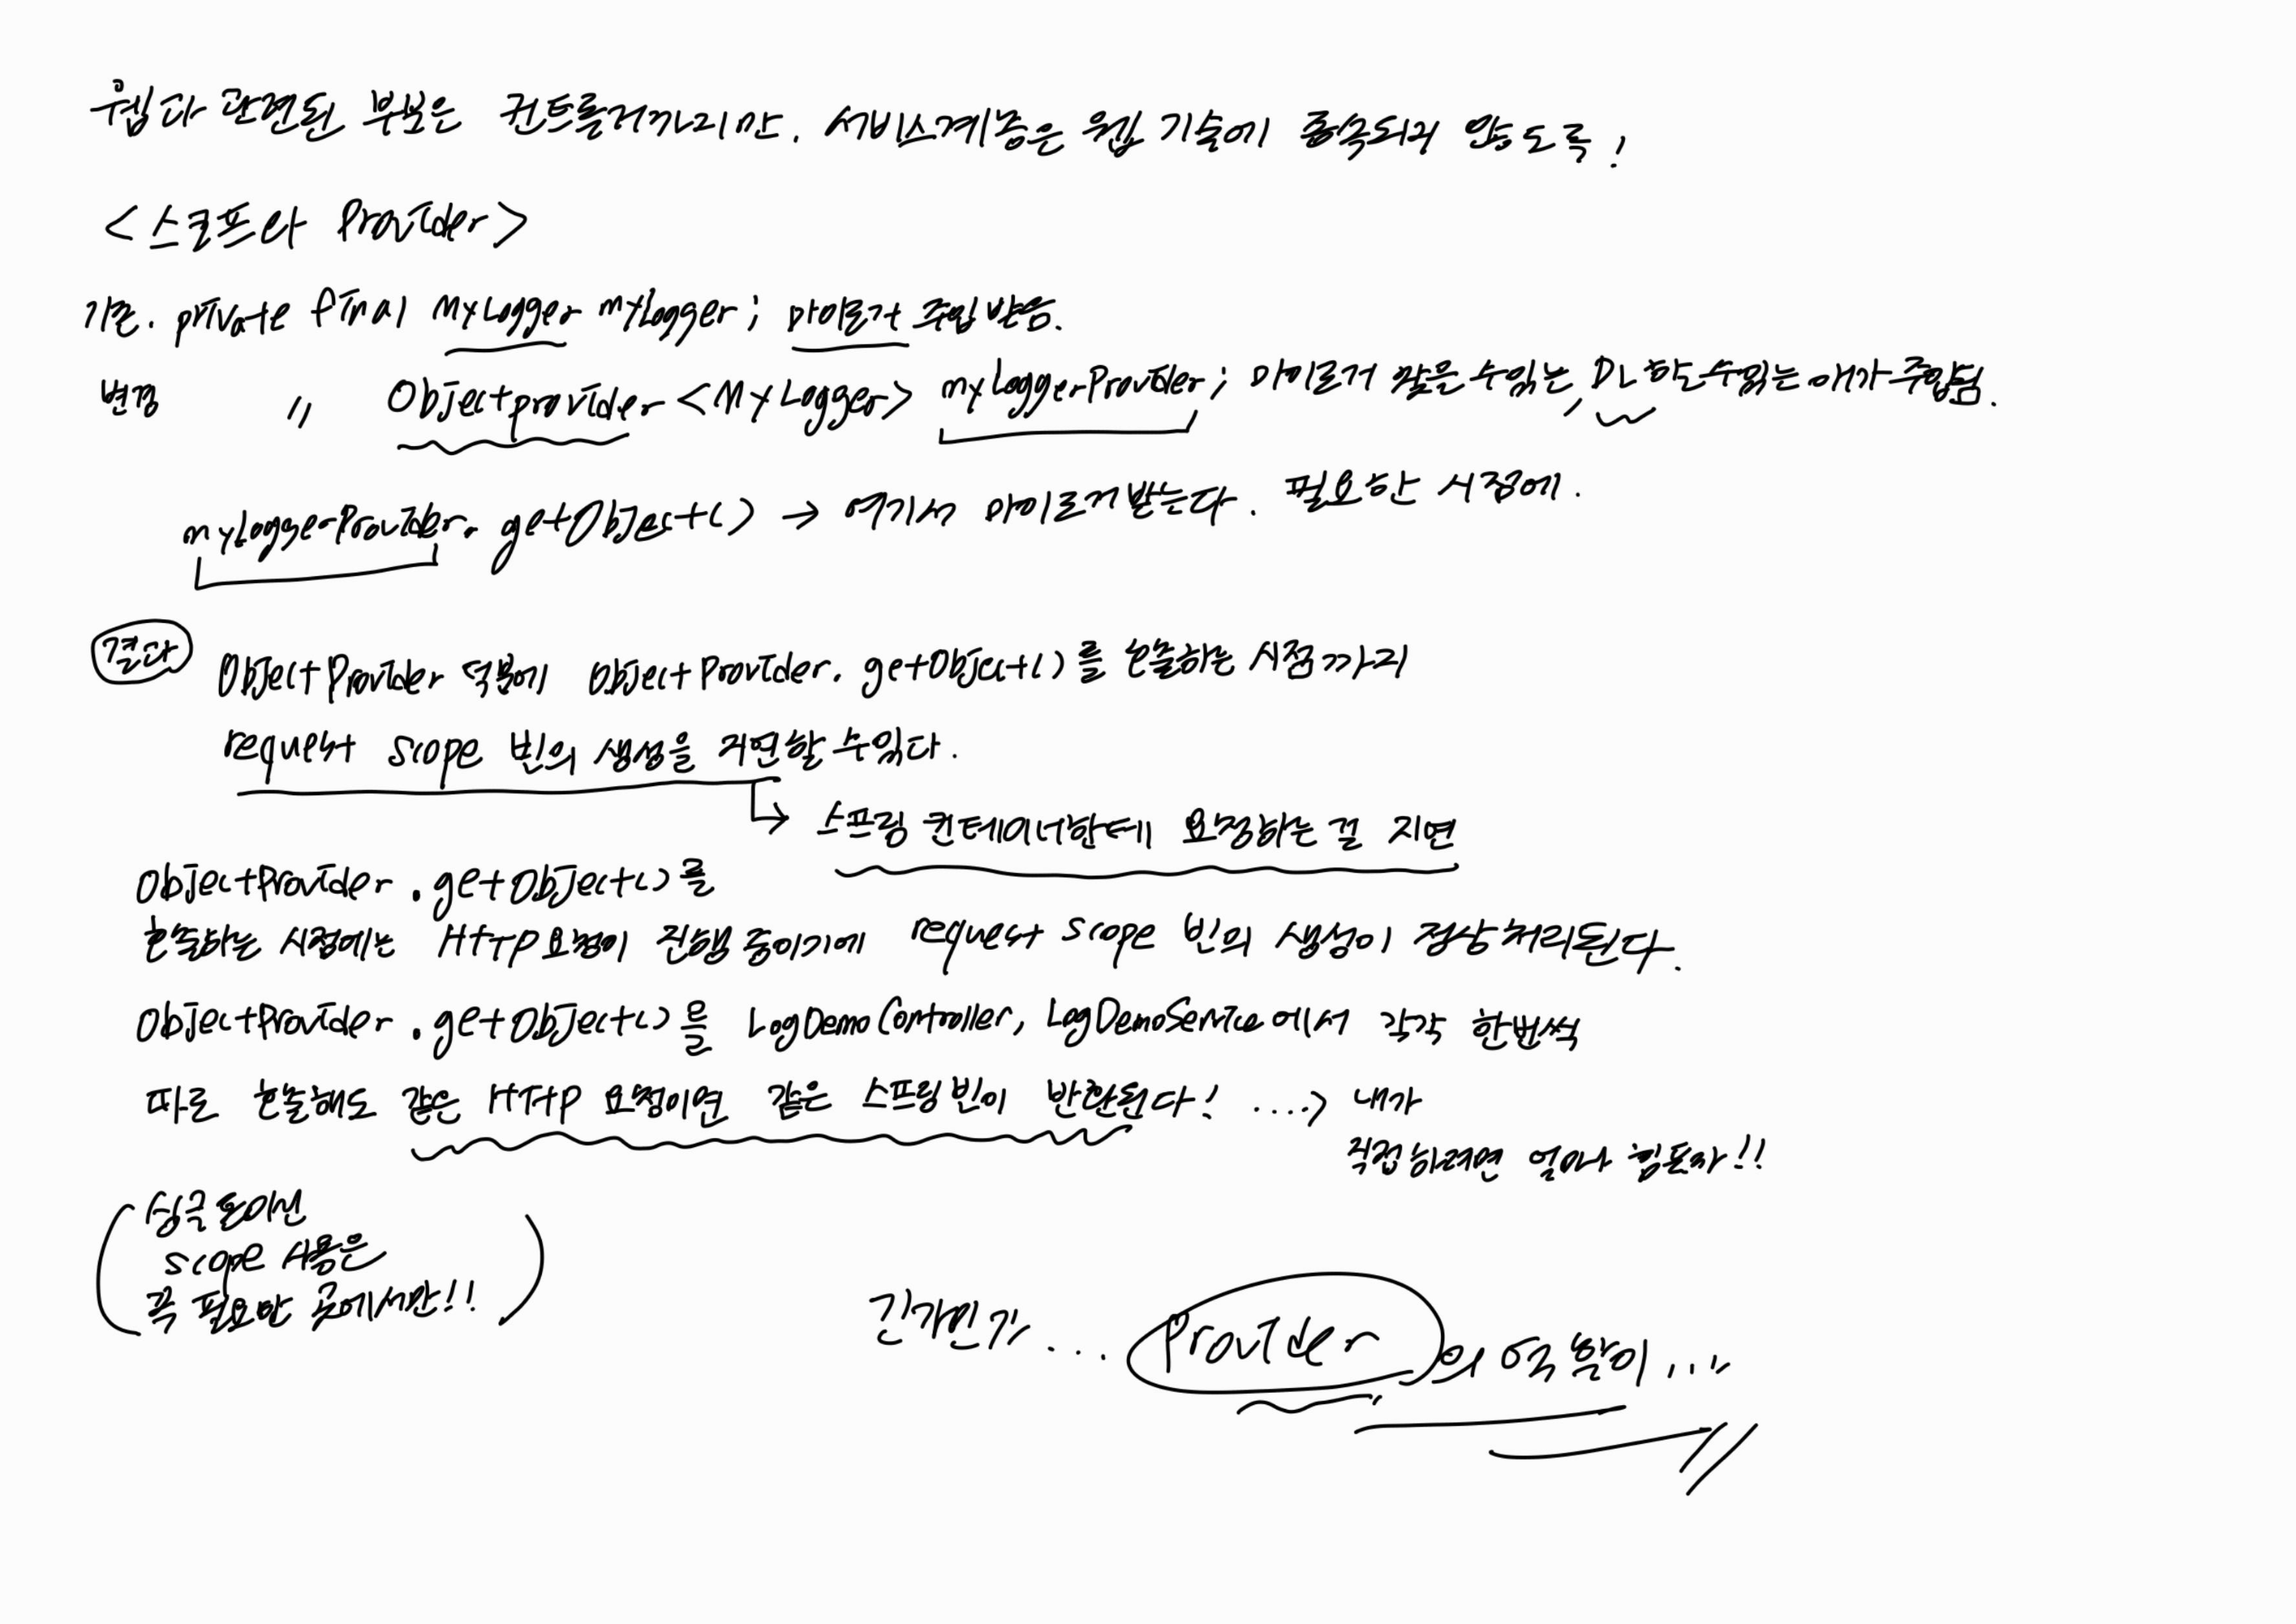 웹과 관련된 부분은 컨트롤러까지만. 서비스계층은 웹 기술에 종속되지 않도록!
<스코프와 Provider>
기존. private final MyLogger myLogger; 마이로거 주입 받음.
변경 〃 ObjectProvider <MyLogger> myLoggerProvider; 마이로거 찾을 수 있는, DL 할 수 있는 애가 주입됨.
myLoggerProvider. getObject() → 여기서 마이로거 받는다. 필요한 시점에.
결과 ObjectProvider 덕분에 ObjectProvider. getObject()를 호출하는 시점까지
request scope 빈의 생성을 지연할 수 있다.
↳ 스프링 컨테이너한테 요청하는 걸 지연
ObjectProvider .getObject()를
호출하는 시점에는 HTTP 요청이 진행 중이기에 request scope 빈의 생성이 정상 처리된다.
ObjectProvider .getObject()를 LogDemoController, LogDemoService에서 각각 한번씩
따로 호출해도 같은 HTTP 요청이면 같은 스프링 빈이 반환된다! ....> 내가
직접하려면 얼마나 힘든지!!
(싱글톤아닌
scope 사용은
꼭 필요한 곳에서만!!)
긴가민가... Provider의 역할이...